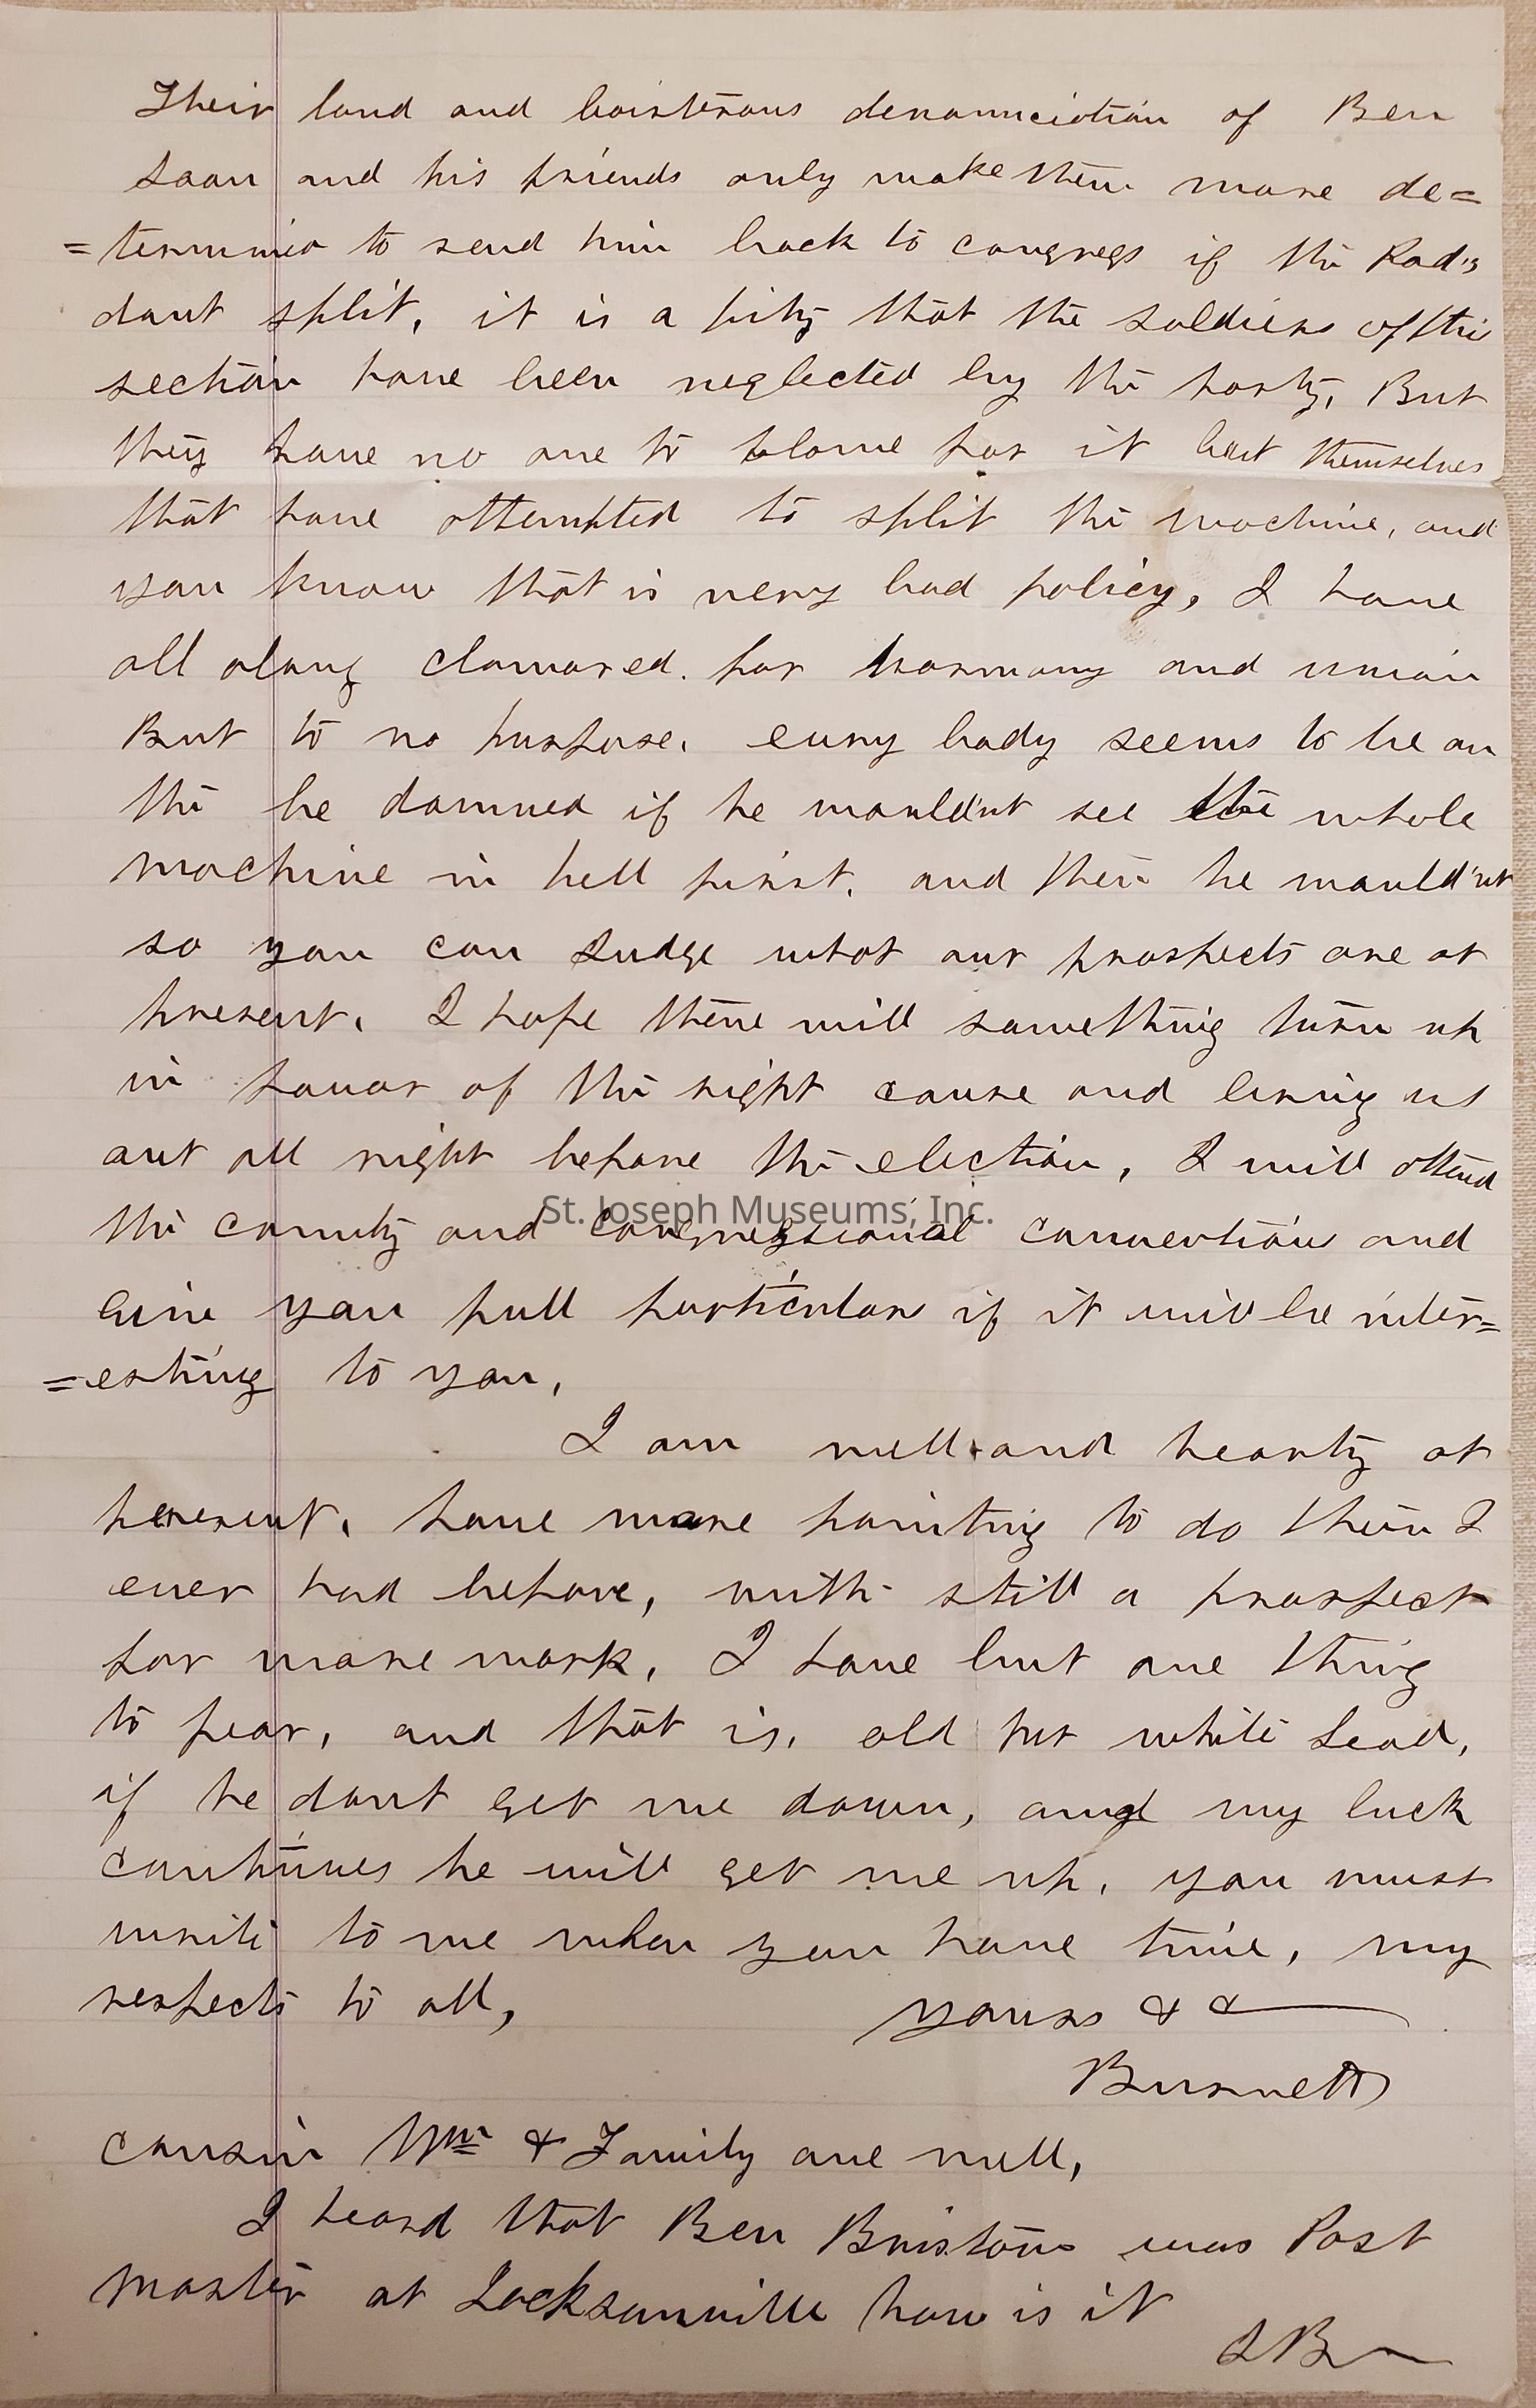 Their loud and boisterous denounciation of Ben
Loan and his friends only make them more de=
=termined to send him back to congress if the Rad's
dont split, it is a pity that the soldiers of this
section have been neglected by the party, But
they have no one to blame for it but themselves
that have attempted to split the machine, and
you know that is very bad policy, I have
all along clamored. for harmony and union
But to no purpose. every body seems to be on
the be damned if he wouldnt see the whole
machine in hell first, and then he would'nt
so you can Judge what our prospects are at
present. I hope there will something turn up
in favor of the right cause and bring us
out all right before the election, I will attend
the county and congressional convention and
give you full particulars if it will be inter=
=esting to you,
I am well and hearty at
present, have more painting to do then I
ever had before, with still a prospect
for more work, I have but one thing
to fear, and that is, old pur white Lead,
if he dont get me down, and my luck
continues he will get me up, you must
write to me when you have time, my
respects to all,
yours & &
Burnett
cousin Wm & Family are well,
I heard that Ben Bristow was Post
master at Jacksonville how is it
JB
St. Joseph Museums, Inc.